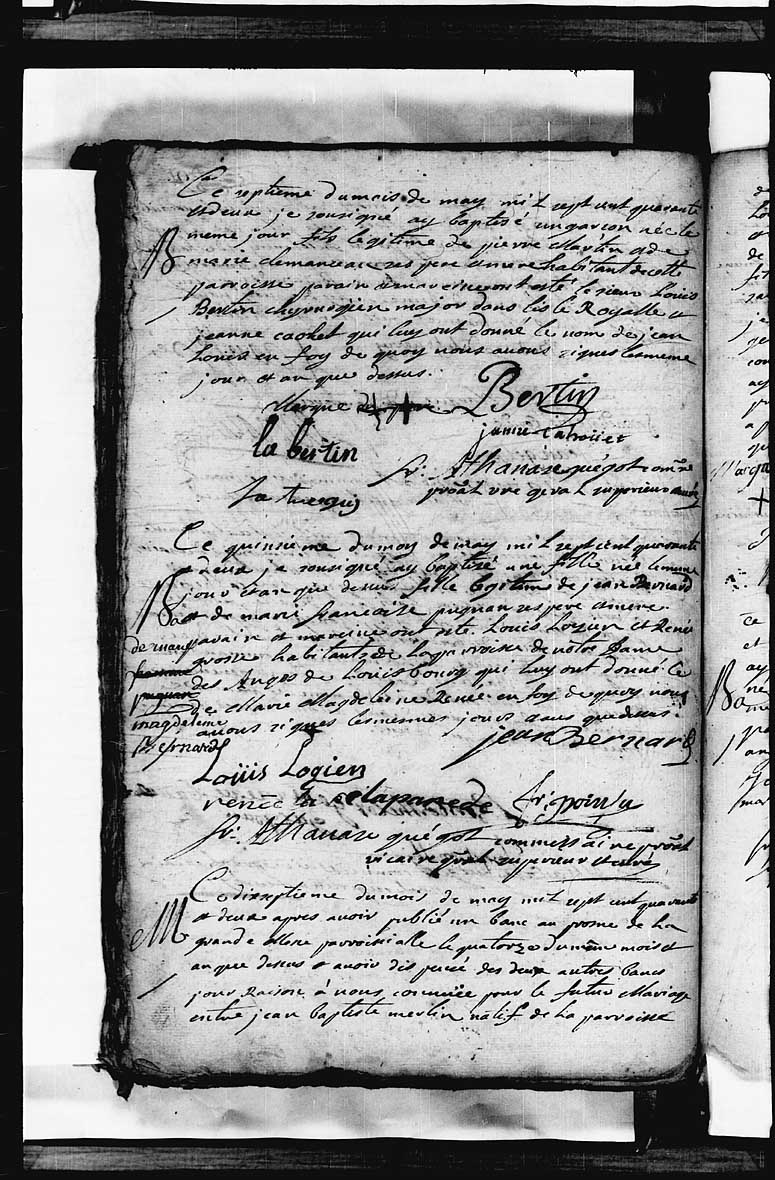 Ce septieme du mois de may mil sept cent quarante
et deux je sousigné ay baptisé un garcon né le
meme jour fils legitime de pierre Martin et de
B
marie clemanceau ses pere et mere habitant de cette
parroisse parain et maraine ont esté le sieur Louis
Bertin chyrurgien major dans lisle Royalle et
jeanne cachet qui luy ont donné le nom de jean
Louis en foy de quoy nous avons signes les meme
jour et an que dessus.
Marque du pere + Bertin
la bertin
fr. Athanase guégot comre
provãl vre geral superieur
Ce quinsieme du moy de may mil sept cent quarante
et deux je sousigné ay baptisé une fille née le meme
jour et an que dessus fille legitime de jean Bernard
Ba
et de marie francoise pugnan ses pere et mere.
paraire et mareine ont esté Louis Logien et Renée
de marie
grosse habitants de la parroisse de notre Dame
des Anges de Louisbourg qui luy ont donné le
de Marie Magdeleine Renée en foy de quoy nous
magdeleine
avons signes les mesmes jours et ans que dessus.
Bernard
jean Bernard
Loüis Logien
renée lapanede
fr. Athanase guégot commissaire provãl
vicaire gnãl superieur et curé
Ce dixseptieme du mois de may mil sept cent quarante
et deux apres avoir publié un banc au prosne de la
M
grande Messe parroissialle le quatorze du même mois et
an que dessus et avoir dispencé des deux autres bancs
pour Raison à nous connuëe pour le futur Mariage
entre jean baptiste merlin natif de la parroisse